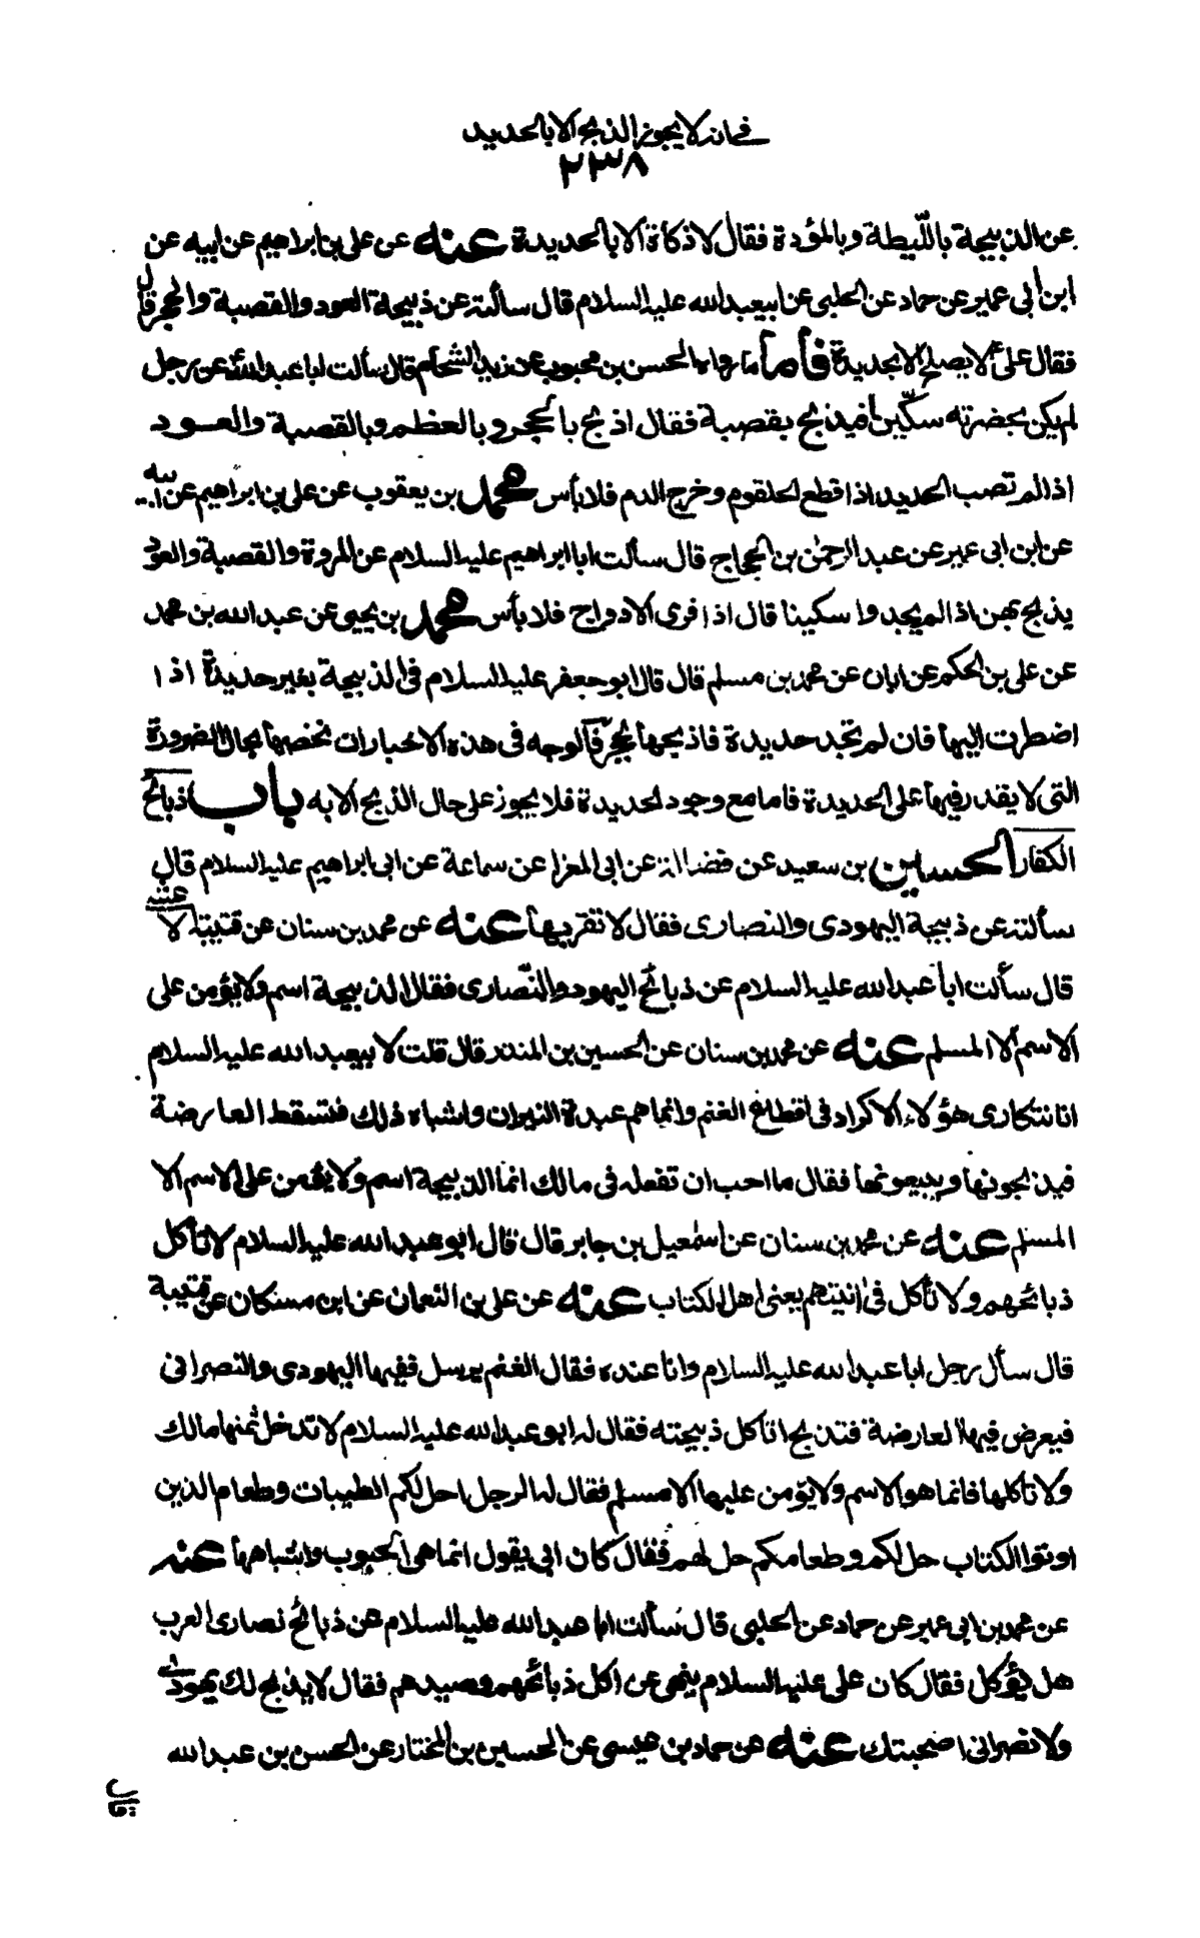 في انه لا يجوز الذبح الا بالحديد
٢٣٨
عن الذبيحة باللّيطة وبالمؤدة فقال لا ذكاة الا بالحديدة عنه عن علي بن ابراهيم عن ابيه عن
ابن ابي عمير عن حماد عن الحلبي عن ابيعبدالله عليه السلام قال سألته عن ذبيحة العود والقصبة والحجر قال
فقال علىّ لا يصلح الا بحديدة فأما ما رواه الحسن بن محبوب عن زيد الشحّام قال سألت ابا عبدالله عن رجل
لم يكن بحضرته سكّين أفيذبح بقصبة فقال اذبح بالحجر وبالعظم وبالقصبة والعود
اذا لم تصب الحديد اذا قطع الحلقوم وخرج الدم فلا بأس محمد بن يعقوب عن علي بن ابراهيم عن ابيه
عن ابن ابي عمير عن عبد الرحمٰن بن الحجاج قال سألت ابا ابراهيم عليه السلام عن المروة والقصبة والعود
يذبح بهن اذا لم يجدوا سكينا قال اذا فرى الاوداج فلا بأس محمد بن يحيى عن عبد الله بن محمد
عن علي بن الحكم عن ابان عن محمد بن مسلم قال قال ابو جعفر عليه السلام في الذبيحة بغير حديدة اذا
اضطررت اليها فان لم تجد حديدة فاذبحها بحجر فالوجه في هذه الاخبار ان نخصها بحال الضرورة
التي لا يقدر فيها على الحديدة فاما مع وجود الحديدة فلا يجوز على حال الذبح الا به باب ذبائح
الكفار الحسين بن سعيد عن فضالة عن ابي المغرا عن سماعة عن ابي ابراهيم عليه السلام قال
سألته عن ذبيحة اليهودي والنصارى فقال لا تقربها عنه عن محمد بن سنان عن قتيبة الاعشى
قال سألت ابا عبدالله عليه السلام عن ذبائح اليهود والنّصارى فقال الذبيحة اسم ولا يؤمن على
الاسم الا المسلم عنه عن محمد بن سنان عن الحسين بن المنذر قال قلت لابيعبد الله عليه السلام
انا نتكارى هؤلاء الاكراد في اقطاع الغنم وانما هم عبدة النيران واشباه ذلك فتسقط العارضة
فيذبحونها ويبيعونها فقال ما احب ان تفعله في مالك انما الذبيحة اسم ولا يؤمن على الاسم الا
المسلم عنه عن محمد بن سنان عن اسمٰعيل بن جابر قال قال ابو عبد الله عليه السلام لا تأكل
ذبائحهم ولا تأكل في اٰنيتهم يعنى اهل الكتاب عنه عن علي بن النعمان عن ابن مسكان عن قتيبة
قال سأل رجل ابا عبدالله عليه السلام وانا عنده فقال الغنم يرسل ففيها اليهودي والنصراني
فيعرض فيها العارضة فتذبح اناكل ذبيحته فقال له ابو عبدالله عليه السلام لا تدخل ثمنها مالك
ولا تأكلها فانما هو الاسم ولا يؤمن عليها الا مسلم فقال له الرجل احل لكم الطيبات وطعام الذين
اوتوا الكتاب حل لكم وطعامكم حل لهم فقال كان ابي يقول انما هي الحبوب واشباهها عنه
عن محمد بن ابي عمير عن حماد عن الحلبي قال سألت ابا عبدالله عليه السلام عن ذبائح نصارى العرب
هل يؤكل فقال كان علي عليه السلام ينهى عن اكل ذبائحهم وصيدهم فقال لا يذبح لك يهودي
ولا نصراني اضحيتك عنه عن حماد بن عيسى عن الحسين بن المختار عن الحسن بن عبدالله
قال